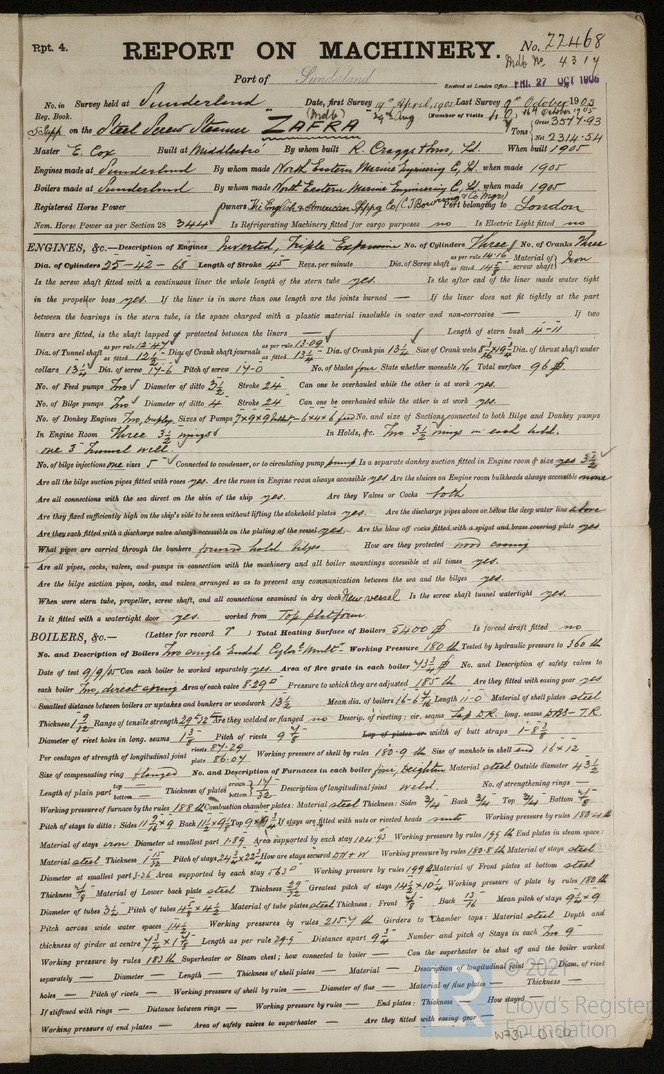 Rpt. 4.
REPORT ON MACHINERY.
No. 22468
Mdb No. 4314
Port of Sunderland
Received at London Office FRI. 27 OCT 1905
No. in Survey held at Sunderland Date, first Survey 19th April, 1905 Last Survey 9th October 1905
Reg. Book. (Mdb) 29th Aug (Number of Visits 16th October 1905
on the Steel Screw Steamer ZAFRA Tons Gross 3577.93 Net 2314.54
Master E. Cox Built at Middlesbro' By whom built R. Craggs & Sons, Ld. When built 1905
Engines made at Sunderland By whom made North Eastern Marine Engineering Co, Ld. when made 1905
Boilers made at Sunderland By whom made North Eastern Marine Engineering Co, Ld. when made 1905
Registered Horse Power Owners The English & American Shippg Co (C.T. Bowring & Co Mgrs) Port belonging to London
Nom. Horse Power as per Section 28 344 Is Refrigerating Machinery fitted for cargo purposes no Is Electric Light fitted no
ENGINES, &c.—Description of Engines Inverted, Triple Expansion No. of Cylinders Three No. of Cranks Three
Dia. of Cylinders 25-42-68 Length of Stroke 45 Revs. per minute Dia. of Screw shaft as per rule 14.16 as fitted 14 5/8 Material of screw shaft Iron
Is the screw shaft fitted with a continuous liner the whole length of the stern tube yes. Is the after end of the liner made water tight
in the propeller boss yes. If the liner is in more than one length are the joints burned — If the liner does not fit tightly at the part
between the bearings in the stern tube, is the space charged with a plastic material insoluble in water and non-corrosive — If two
liners are fitted, is the shaft lapped or protected between the liners — Length of stern bush 4-11
Dia. of Tunnel shaft as per rule 12.47 as fitted 12 1/2 Dia. of Crank shaft journals as per rule 13.09 as fitted 13 1/4 Dia. of Crank pin 13 1/4 Size of Crank webs Dia. of thrust shaft under
collars 13 1/4 Dia. of screw 17-6 Pitch of screw 17-0 No. of blades four State whether moveable No Total surface 96
No. of Feed pumps Two Diameter of ditto 3 1/2 Stroke 24 Can one be overhauled while the other is at work yes.
No. of Bilge pumps Two Diameter of ditto 4 Stroke 24 Can one be overhauled while the other is at work yes.
No. of Donkey Engines Two, duplex Sizes of Pumps 7x9x9 ballast - 6x4x6 feed No. and size of Suctions connected to both Bilge and Donkey pumps
In Engine Room Three 3 1/2 In Holds, &c. Two 3 1/2 in each hold.
one 3" tunnel well.
No. of bilge injections one sizes 5" Connected to condenser, or to circulating pump pump Is a separate donkey suction fitted in Engine room & size yes 3 1/2
Are all the bilge suction pipes fitted with roses yes. Are the roses in Engine room always accessible yes Are the sluices on Engine room bulkheads always accessible none
Are all connections with the sea direct on the skin of the ship yes. Are they Valves or Cocks both
Are they fixed sufficiently high on the ship's side to be seen without lifting the stokehold plates yes. Are the discharge pipes above or below the deep water line above
Are they each fitted with a discharge valve always accessible on the plating of the vessel yes. Are the blow off cocks fitted with a spigot and brass covering plate yes
What pipes are carried through the bunkers forward hold bilges How are they protected wood casing
Are all pipes, cocks, valves, and pumps in connection with the machinery and all boiler mountings accessible at all times yes.
Are the bilge suction pipes, cocks, and valves arranged so as to prevent any communication between the sea and the bilges yes.
When were stern tube, propeller, screw shaft, and all connections examined in dry dock New vessel Is the screw shaft tunnel watertight yes.
Is it fitted with a watertight door yes. worked from Top platform.
BOILERS, &c.— (Letter for record T) Total Heating Surface of Boilers 5400 Is forced draft fitted no
No. and Description of Boilers Two single Ended Cylr. Mult. Working Pressure 180 lb Tested by hydraulic pressure to 360 lb
Date of test 9/9/05 Can each boiler be worked separately yes. Area of fire grate in each boiler 73 3/4 No. and Description of safety valves to
each boiler Two, direct spring Area of each valve 8.29 Pressure to which they are adjusted 185 lb Are they fitted with easing gear yes
Smallest distance between boilers or uptakes and bunkers or woodwork 13 1/2 Mean dia. of boilers Length 11-0 Material of shell plates steel
Thickness 1 9/32 Range of tensile strength 29-32 Are they welded or flanged no Descrip. of riveting: cir. seams Lap D.R. long. seams DBS-T.R.
Diameter of rivet holes in long. seams 1 3/8 Pitch of rivets 9 7/8 Lap of plates or width of butt straps
Per centages of strength of longitudinal joint rivets 87.29 plate 86.07 Working pressure of shell by rules 180.9 lb Size of manhole in shell end 16x12
Size of compensating ring flanged No. and Description of Furnaces in each boiler four, Deighton Material steel Outside diameter 43 1/2
Length of plain part top — bottom — Thickness of plates crown 17/32 bottom Description of longitudinal joint weld. No. of strengthening rings —
Working pressure of furnace by the rules 188 lb Combustion chamber plates: Material steel Thickness: Sides 3/4 Back 3/4 Top 3/4 Bottom 7/8
Pitch of stays to ditto: Sides Back Top If stays are fitted with nuts or riveted heads nuts Working pressure by rules
Material of stays iron Diameter at smallest part 1.89 Area supported by each stay Working pressure by rules 199 lb End plates in steam space:
Material steel Thickness Pitch of stays How are stays secured Working pressure by rules 180.8 lb Material of stays steel
Diameter at smallest part Area supported by each stay 563 Working pressure by rules Material of Front plates at bottom steel
Thickness 7/8 Material of Lower back plate steel Thickness 29/32 Greatest pitch of stays 14 1/2 x 10 1/4 Working pressure of plate by rules 180 lb
Diameter of tubes 3 1/4 Pitch of tubes Material of tube plates steel Thickness: Front 7/8 Back 13/16 Mean pitch of stays
Pitch across wide water spaces 14 1/2 Working pressures by rules 215.7 lb Girders to Chamber tops: Material steel Depth and
thickness of girder at centre Length as per rule 29.5 Distance apart 9 3/4 Number and pitch of Stays in each Two 9
Working pressure by rules 183 lb Superheater or Steam chest; how connected to boiler — Can the superheater be shut off and the boiler worked
separately — Diameter — Length — Thickness of shell plates — Material — Description of longitudinal joint — Diam. of rivet
holes — Pitch of rivets — Working pressure of shell by rules — Diameter of flue — Material of flue plates — Thickness —
If stiffened with rings — Distance between rings — Working pressure by rules — End plates: Thickness — How stayed —
Working pressure of end plates — Area of safety valves to superheater — Are they fitted with easing gear —
© 2021
LR
Lloyd's Register
Foundation
W731-0100